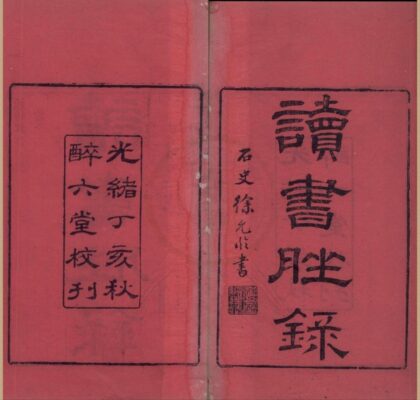 讀書脞錄
石史徐允臨書
光緒丁亥秋
醉六堂校刊